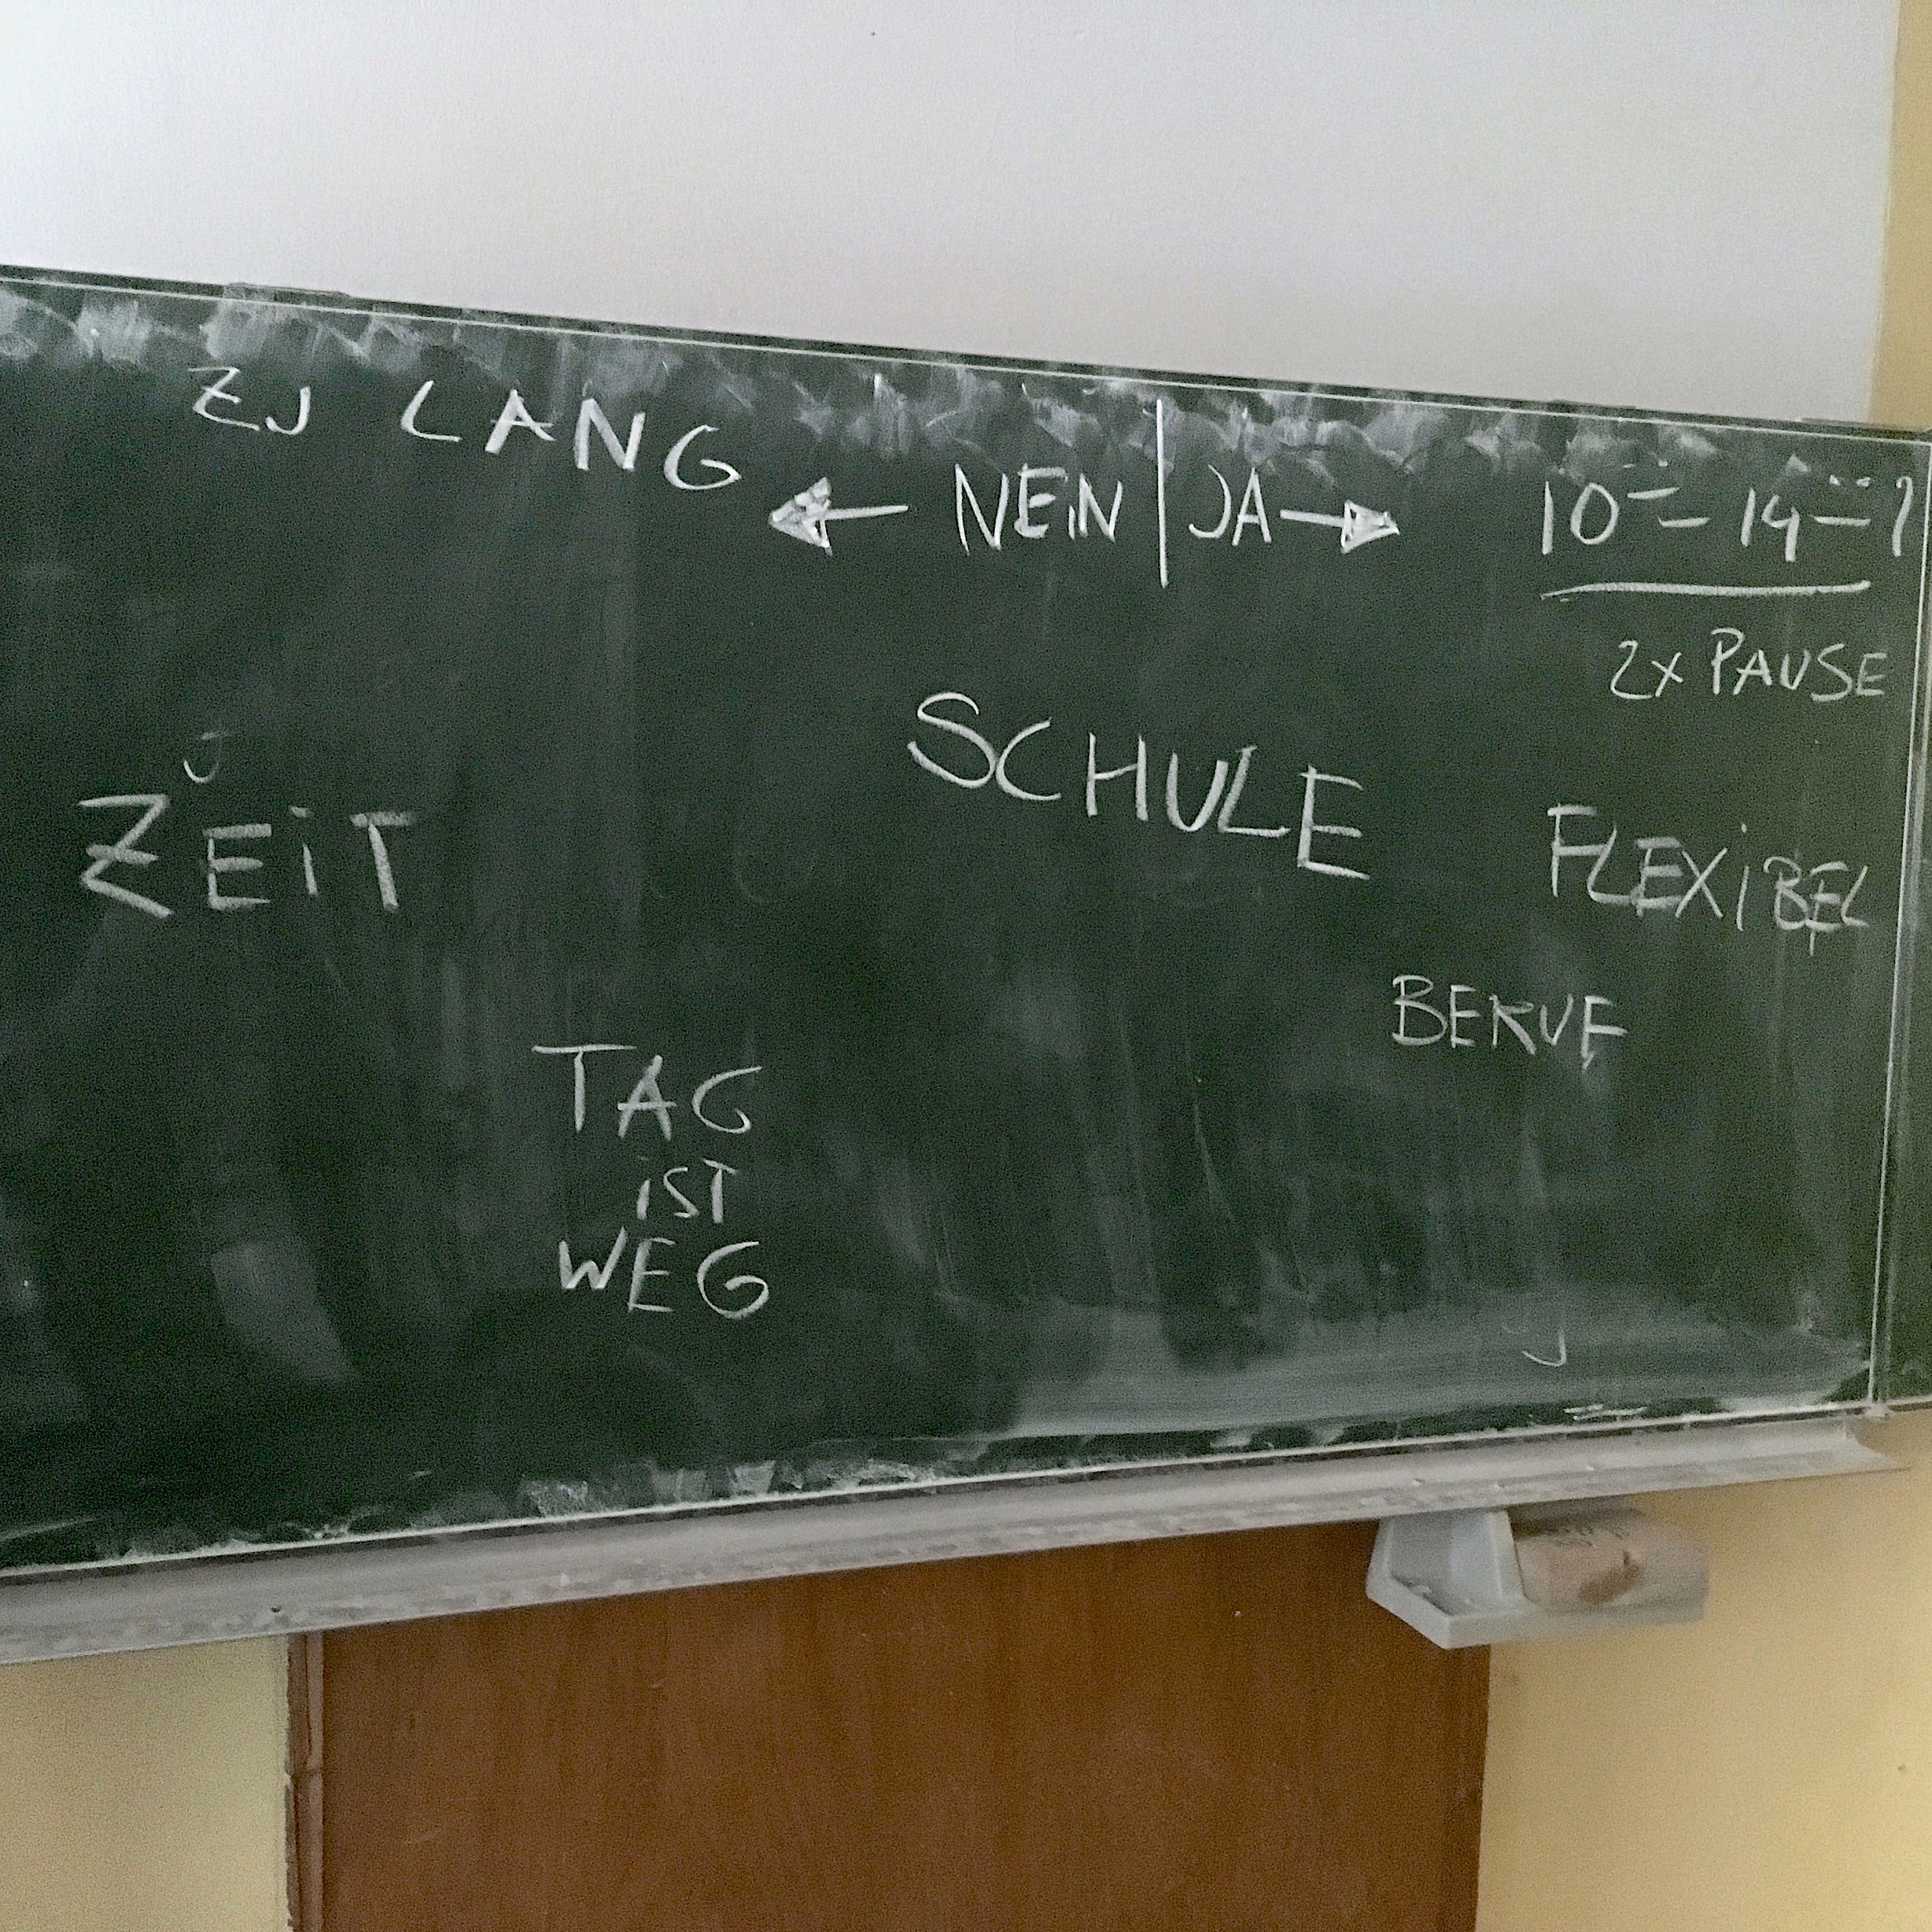 ZU LANG
← NEiN | JA →
10 – 14 ?
2x PAUSE
SCHULE
ZEiT
FLEXiBEL
BERUF
TAG
iST
WEG